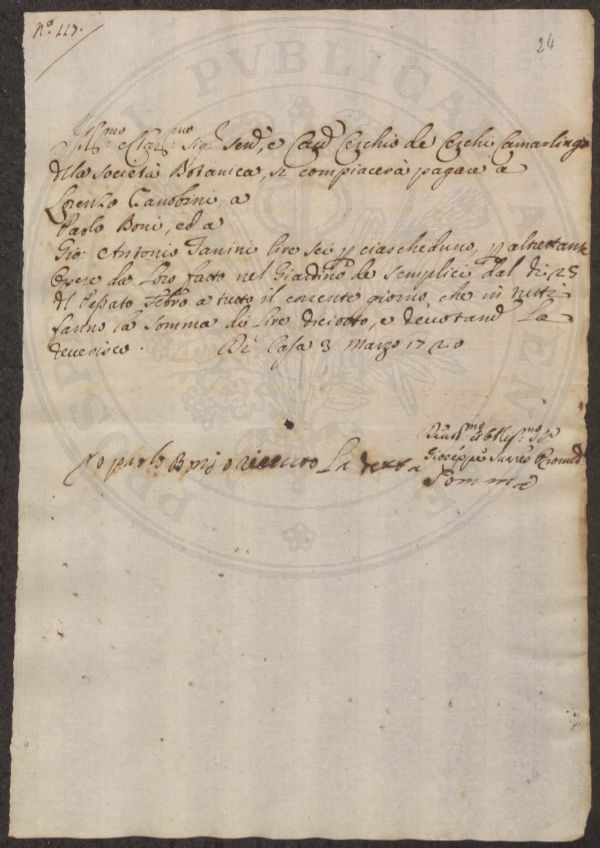 N.º 117.
24
Ill.mo e Clar.mo Sig.r Send, e Cav.e Cerchio de Cerchi Camarlingo
della Società Botanica, si compiacerà pagare a
Lorenzo Zanobini, a
Paolo Boni, ed a
Gio: Antonio Janini lire sei p ciascheduno, p altrettante
Opere da Loro fatte nel Giardino de Semplici dal dì 25
del Passato Febro a tutto il corrente giorno, che in tutti
fanno la Somma di Lire diciotto, e devotam La
reverisco. Di Casa 3 Marzo 17
Giuseppe
Io paolo Boni o riceuto La detta
Somma